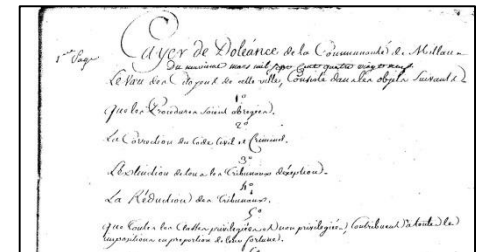 1ere Page
Cayer de Doléance de la Communauté de Millau
Du neuvieme mars mil sept cent quatre vingt neuf
Le Vœu des Citoyens de cette ville, Consiste dans les objets suivants
1°
Que les Procedures soient abregées.
2°
La Correction du Code Civil et Criminel.
3°
L'Extinction de tous les Tribunaux d'exception.
4°
La Réduction des Tribunaux.
5°
Que toutes les Classes privilegiées et non privilegiées, Contribuent à toute les
impositions en proportion de leur fortune.